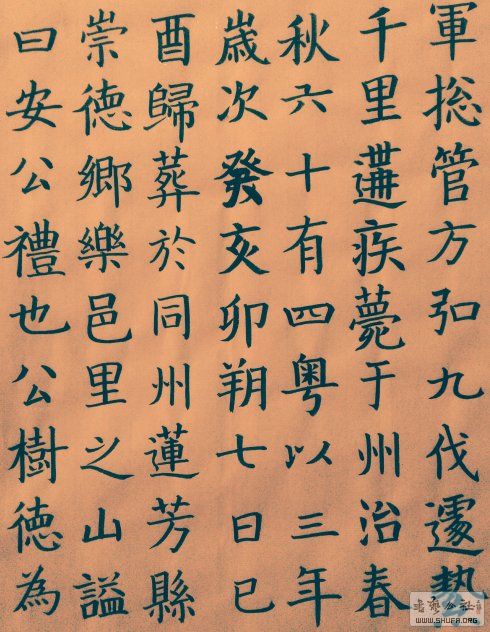 軍捴管方弘九伐遽
千里遘疾薨于州治春
秋六十有四粤以三年
歲次癸亥卯朔七日己
酉歸葬於同州蓮芳縣
崇徳鄉樂邑里之山謚
曰安公禮也公樹徳為
WWW.SHUFA.ORG